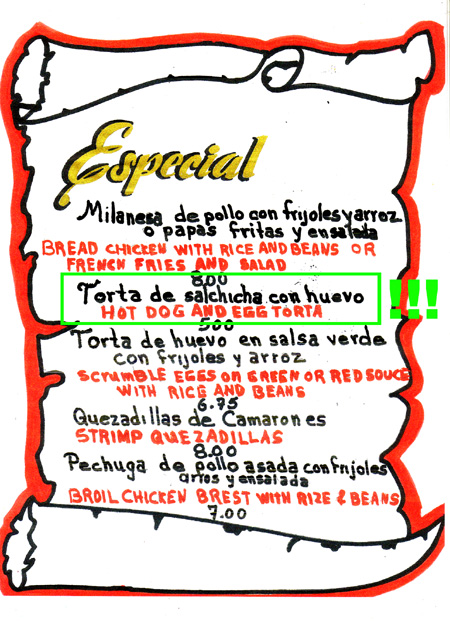 Especial
Milanesa de pollo con frijoles y arroz
o papas fritas y ensalada
BREAD CHICKEN WITH RICE AND BEANS OR
FRENCH FRIES AND SALAD
8.00
Torta de salchicha con huevo
HOT DOG AND EGG TORTA
!!!
5.00
Torta de huevo en salsa verde
con frijoles y arroz
SCRUMBLE EGGS ON GREEN OR RED SOUCE
WITH RICE AND BEANS
6.75
Quezadillas de Camarones
STRIMP QUEZADILLAS
8.00
Pechuga de pollo asada con frijoles
arros y ensalada
BROIL CHICKEN BREST WITH RIZE & BEANS
7.00